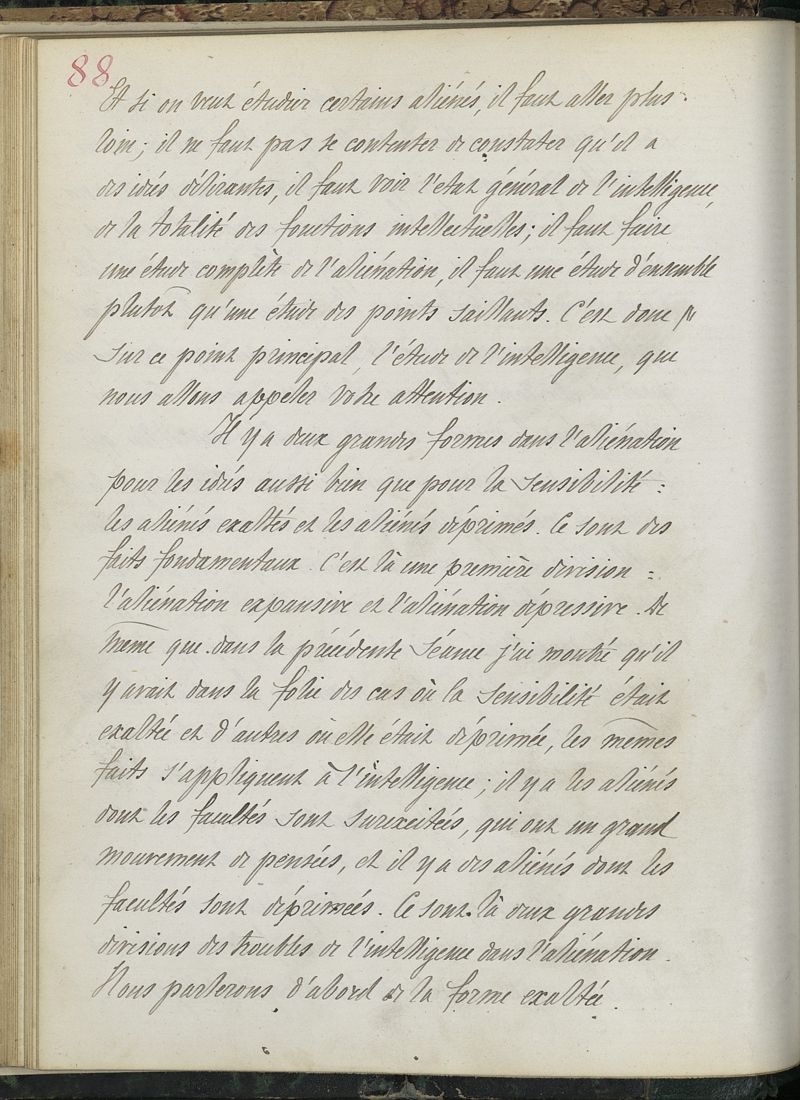 88
Et si on veut étudier certains aliénés, il faut aller plus
loin; il ne faut pas se contenter de constater qu'il a
des idées délirantes, il faut voir l'état général de l'intelligence,
de la totalité des fonctions intellectuelles; il faut faire
une étude complète de l'aliénation, il faut une étude d'ensemble
plutôt qu'une étude des points saillants. C'est donc
sur ce point principal, l'étude de l'intelligence, que
nous allons appeler votre attention.
Il y a deux grandes formes dans l'aliénation
pour les idées aussi bien que pour la sensibilité :
les aliénés exaltés et les aliénés déprimés. Ce sont des
faits fondamentaux. C'est là une première division :
l'aliénation expansive et l'aliénation dépressive. De
même que dans la précédente séance j'ai montré qu'il
y avait dans la folie des cas où la sensibilité était
exaltée et d'autres où elle était déprimée, les mêmes
faits s'appliquent à l'intelligence; il y a les aliénés
dont les facultés sont surexcitées, qui ont un grand
mouvement de pensées, et il y a des aliénés dont les
facultés sont déprimées. Ce sont là deux grandes
divisions des troubles de l'intelligence dans l'aliénation.
Nous parlerons d'abord de la forme exaltée.